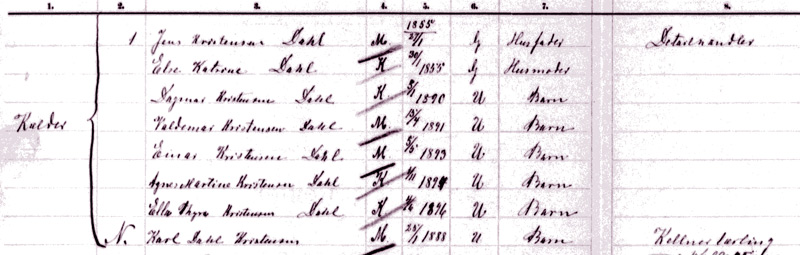 1. 2. 3. 4. 5. 6. 7. 8.
1 Jens Kristensen Dahl M. 1855 27/1 G Husfader Detailhandler
Else Katrine Dahl K 30/1 1855 G Husmoder
Dagmar Kristensen Dahl K. 1890 U Barn
Kælder Valdemar Kristensen Dahl M. 13/4 1891 U Barn
Einar Kristensen Dahl M 5/5 1893 U Barn
Agnes Martine Kristensen Dahl K 1894 U Barn
Ella Thyra Kristensen Dahl K 1896 U Barn
N. Karl Dahl Kristensen M. 1888 U Barn Kellnerlærling